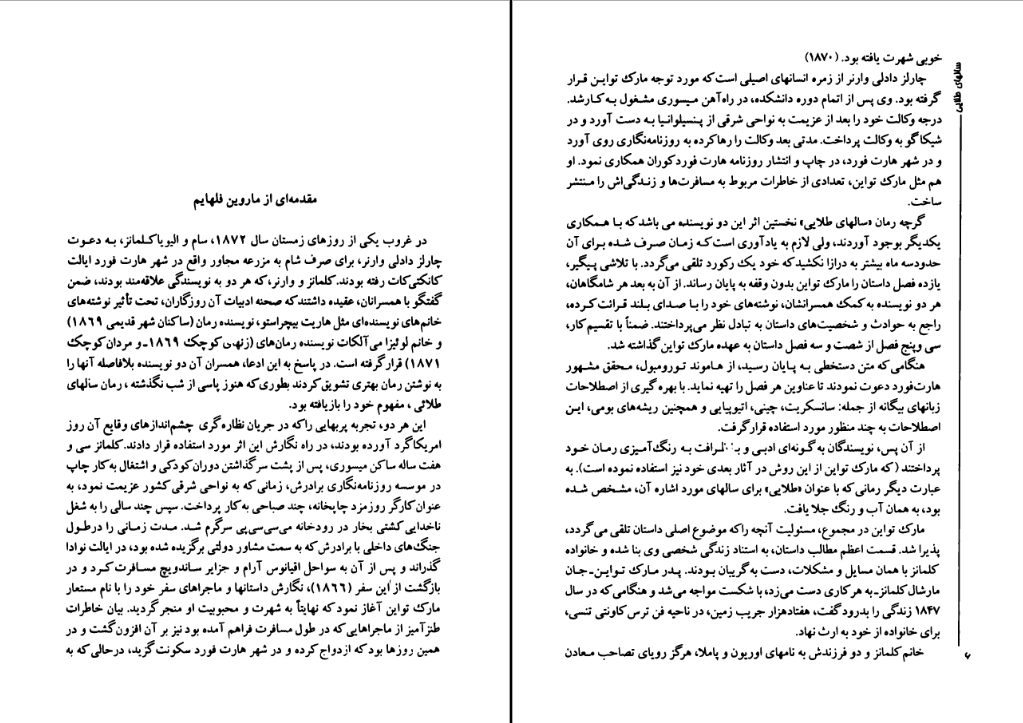 مقدمه‌ای از ماروین فلهایم
در غروب یکی از روزهای زمستان سال ۱۸۷۲، سام و الیویا کلمانز، به دعوت
چارلز دادلی وارنر، برای صرف شام به مزرعه مجاور واقع در شهر هارت فورد ایالت
کانکتی‌کات رفته بودند. کلمانز و وارنر، که هر دو به نویسندگی علاقه‌مند بودند، ضمن
گفتگو با همسرانان، عقیده داشتند که صحنه ادبیات آن روزگاران، تحت تأثیر نوشته‌های
خانم‌های نویسنده‌ای مثل هاریت بیچراستو، نویسنده رمان (ساکنان شهر قدیمی ۱۸۶۹)
و خانم لوئیزا می‌آلکات نویسنده رمان‌های (زنهای کوچک ۱۸۶۹ـ و مردان کوچک
۱۸۷۱) قرار گرفته است. در پاسخ به این ادعا، همسران آن دو نویسنده بلافاصله آنها را
به نوشتن رمان بهتری تشویق کردند بطوری که هنوز پاسی از شب نگذشته ، رمان سالهای
طلائی ، مفهوم خود را بازیافته بود.
این هر دو، تجربه پربهایی را که در جریان نظاره‌گری چشم‌اندازهای وقایع آن روز
امریکا گرد آورده بودند، در راه نگارش این اثر مورد استفاده قرار دادند. کلمانز سی و
هفت ساله ساکن میسوری، پس از پشت سر گذاشتن دوران کودکی و اشتغال به کار چاپ
در موسسه روزنامه‌نگاری برادرش، زمانی که به نواحی شرقی کشور عزیمت نمود، به
عنوان کارگر روزمزد چاپخانه، چند صباحی به کار پرداخت. سپس چند سالی را به شغل
ناخدایی کشتی بخار در رودخانه می‌سی‌سی‌پی سرگرم شد. مدت زمانی را در طول
جنگ‌های داخلی با برادرش که به سمت مشاور دولتی برگزیده شده بود، در ایالت نوادا
گذراند و پس از آن به سواحل اقیانوس آرام و جزایر ساندویچ مسافرت کرد و در
بازگشت از این سفر (۱۸۶۶)، نگارش داستانها و ماجراهای سفر خود را با نام مستعار
مارک تواین آغاز نمود که نهایتاً به شهرت و محبوبیت او منجر گردید. بیان خاطرات
طنزآمیز از ماجراهایی که در طول مسافرت فراهم آمده بود نیز بر آن افزون گشت و در
همین روزها بود که ازدواج کرده و در شهر هارت فورد سکونت گزید، درحالی که به
خوبی شهرت یافته بود. (۱۸۷۰)
چارلز دادلی وارنر از زمره انسانهای اصیلی است که مورد توجه مارک تواین قرار
گرفته بود. وی پس از اتمام دوره دانشکده، در راه‌آهن میسوری مشغول به کار شد.
درجه وکالت خود را بعد از عزیمت به نواحی شرقی از پنسیلوانیا به دست آورد و در
شیکاگو به وکالت پرداخت. مدتی بعد وکالت را رها کرده به روزنامه‌نگاری روی آورد
و در شهر هارت فورد، در چاپ و انتشار روزنامه هارت فورد کوران همکاری نمود. او
هم مثل مارک تواین، تعدادی از خاطرات مربوط به مسافرت‌ها و زندگی‌اش را منتشر
ساخت.
گرچه رمان «سالهای طلایی» نخستین اثر این دو نویسنده می باشد که با همکاری
یکدیگر بوجود آوردند، ولی لازم به یادآوری است که زمان صرف شده برای آن
حدود سه ماه بیشتر به درازا نکشید که خود یک رکورد تلقی می‌گردد. با تلاشی پیگیر،
یازده فصل داستان را مارک تواین بدون وقفه به پایان رساند. از آن به بعد هر شامگاهان،
هر دو نویسنده به کمک همسرانشان، نوشته‌های خود را با صدای بلند قرائت کرده،
راجع به حوادث و شخصیت‌های داستان به تبادل نظر می‌پرداختند. ضمناً با تقسیم کار،
سی وپنج فصل از شصت و سه فصل داستان به عهده مارک تواین گذاشته شد.
هنگامی که متن دستخطی به پایان رسید، از هاموند ترومبول، محقق مشهور
هارت‌فورد دعوت نمودند تا عناوین هر فصل را تهیه نماید. با بهره گیری از اصطلاحات
زبانهای بیگانه از جمله: سانسکریت، چینی، اتیوپیایی و همچنین ریشه‌های بومی، این
اصطلاحات به چند منظور مورد استفاده قرار گرفت.
از آن پس، نویسندگان به گونه‌ای ادبی و به ظرافت به رنگ‌آمیزی رمان خود
پرداختند (که مارک تواین از این روش در آثار بعدی خود نیز استفاده نموده است). به
عبارت دیگر رمانی که با عنوان «طلایی» برای سالهای مورد اشاره آن، مشخص شده
بود، به همان آب و رنگ جلا یافت.
مارک تواین در مجموع، مسئولیت آنچه را که موضوع اصلی داستان تلقی می‌گردد،
پذیرا شد. قسمت اعظم مطالب داستان، به استناد زندگی شخصی وی بنا شده و خانواده
کلمانز با همان مسایل و مشکلات، دست به گریبان بودند. پدر مارک تواین‌ـ‌جان
مارشال کلمانز‌ـ‌به هر کاری دست می‌زد، با شکست مواجه می‌شد و هنگامی که در سال
۱۸۴۷ زندگی را بدرود گفت، هفتاد هزار جریب زمین، در ناحیه فن ترس کاونتی تنسی،
برای خانواده از خود به ارث نهاد.
خانم کلمانز و دو فرزندش به نامهای اوریون و پاملا، هرگز رویای تصاحب معادن
سالهای طلایی
۶